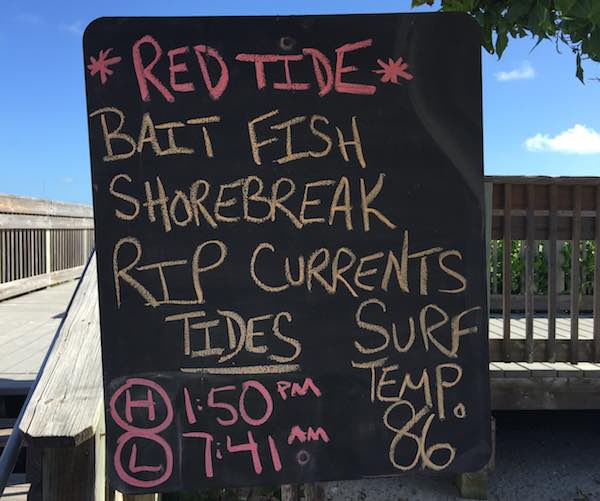 *RED TIDE*
BAIT FISH
SHOREBREAK
RIP CURRENTS
TIDES
H 1:50 PM
L 7:41 AM
SURF
TEMP.
86